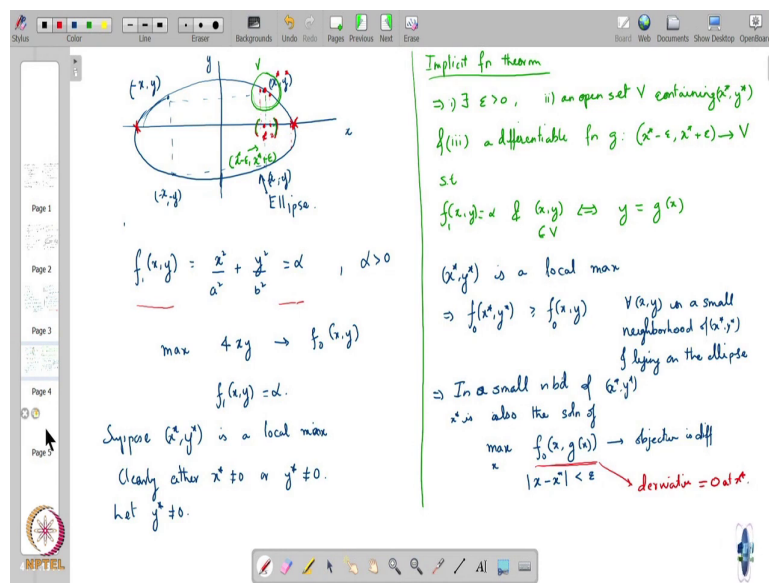 Stylus
Color
Line
Eraser
Backgrounds
Undo
Redo
Pages
Previous
Next
Erase
Board
Web
Documents
Show Desktop
OpenBoard
Page 1
Page 2
Page 3
Page 4
Page 5
NPTEL
y
V
(-x, y)
(x, y)
x
(x*-ε, x*+ε)
(-x, -y)
(x, -y)
Ellipse.
f₁(x,y) = x²/a² + y²/b² = α , α>0
max 4xy → f₀(x,y)
f₁(x,y) = α.
Suppose (x*, y*) is a local max
Clearly either x* ≠0 or y* ≠0.
Let y* ≠0.
Implicit fn theorem
⇒ i) ∃ ε>0, ii) an open set V containing (x*, y*)
& (iii) a differentiable fn g: (x*-ε, x*+ε) → V
s.t
f₁(x,y)=α & (x,y) ⇔ y = g(x)
∈V
(x*,y*) is a local max
⇒ f₀(x*,y*) ≥ f₀(x,y) ∀(x,y) in a small
neighborhood of (x*,y*)
& lying on the ellipse
⇒ In a small nbd of (x*,y*)
x* is also the soln of
max f₀(x, g(x)) → objective is diff
x
|x-x*| < ε
derivative = 0 at x*.
AI